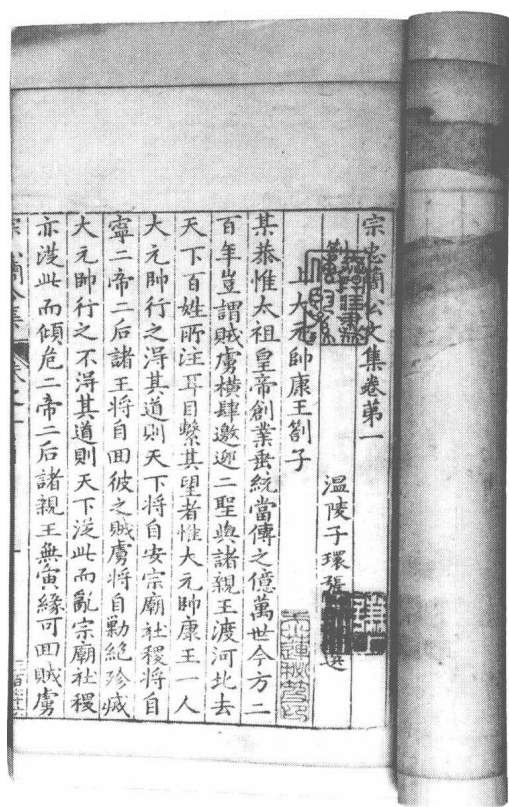 宗忠簡公文集卷第一
溫陵子環張
選
上大元帥康王劄子
某恭惟太祖皇帝創業垂統當傳之億萬世今方二
百年豈謂賊虜橫肆邀迎二聖與諸親王渡河北去
天下百姓所注耳目繫其望者惟大元帥康王一人
大元帥行之得其道則天下將自安宗廟社稷將自
寧二帝二后諸王將自回彼之賊虜將自勦絕殄滅
大元帥行之不得其道則天下從此而亂宗廟社稷
亦從此而傾危二帝二后諸親王無寅緣可回賊虜